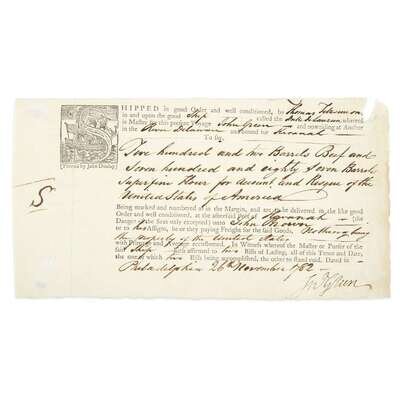 SHIPPED in good Order and well conditioned, by Thomas
in and upon the good Ship called the Duke de Lauzun whereof
is Master for this present Voyage John Green and now riding at Anchor
in the River Delaware and bound for Havanah
To say,
Five hundred and two Barrels Beef and
Seven hundred and eighty Seven Barrels
Superfine flour for account and Risque of the
United States of America
S
Being marked and numbered as in the Margin, and are to be delivered in the like good
Order and well conditioned, at the aforesaid Port of Havanah (the
Danger of the Seas only excepted) unto John Brown
or to his Assigns, he or they paying Freight for the said Goods, Nothing being
the property of the United States
with Primage and Average accustomed. In Witness whereof the Master or Purser of the
said Ship hath affirmed to two Bills of Lading, all of this Tenor and Date,
the one of which two Bills being accomplished, the other to stand void. Dated in
Philadelphia 26th November 1782
Jno Green
[Printed by John Dunlap]